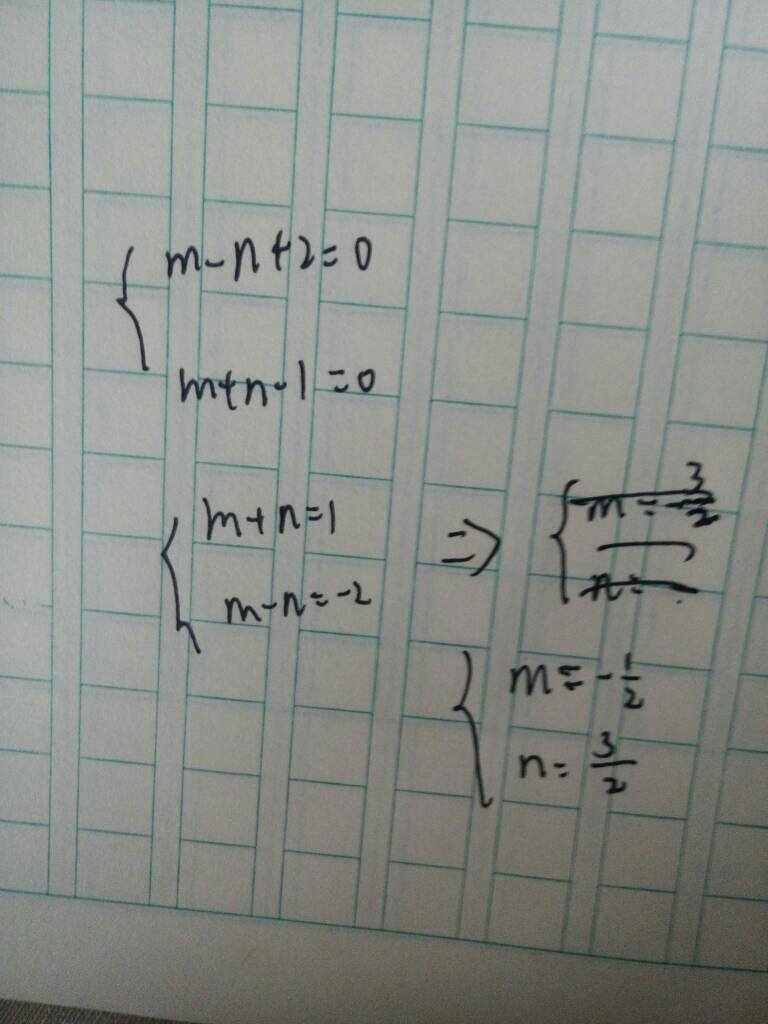 m-n+2=0
m+n-1=0
m+n=1
m-n=-2
=>
m=-1/2
n=3/2